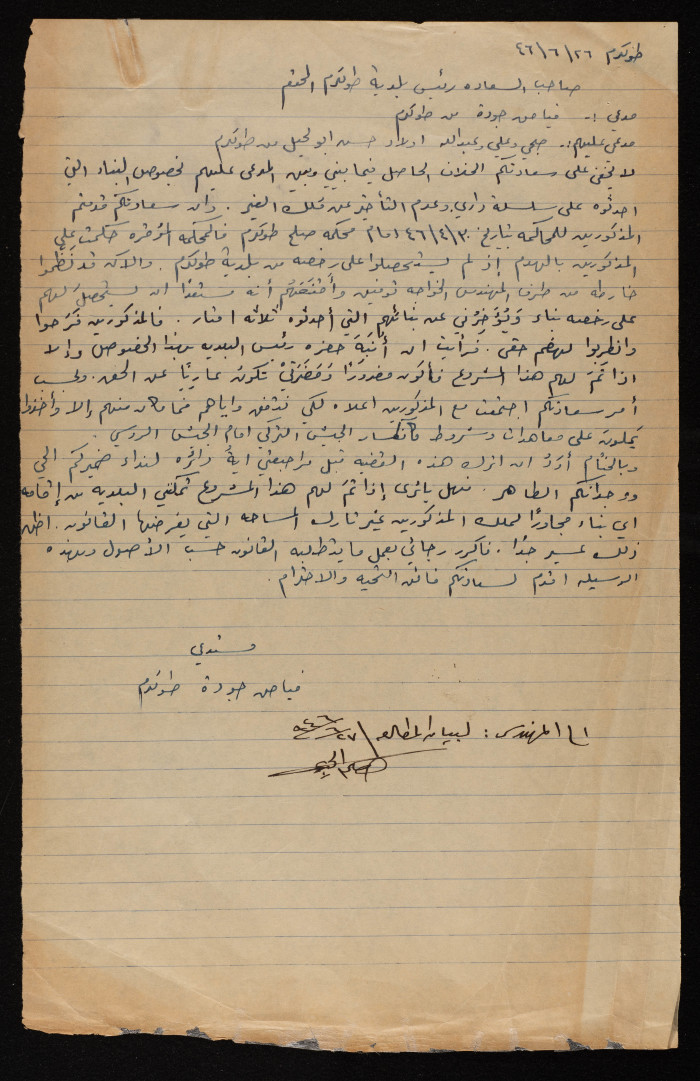 طولكرم ٢٦/٦/٤٦
صاحب السعاده رئيس بلدية طولكرم المحترم
مدعي :- فياض جودة من طولكرم
مدعى عليهم :- صبحي وعلي وعبدالله اولاد حسن ابو لحيل من طولكرم
لا يخفى على سعادتكم الخلاف الحاصل فيما بيني وبين المدعى عليهم بخصوص البناء التي
احدثوه على سلسلة داري وعدم التأخير عن ملك الغير. وان سعادتكم قدمتم
المذكورين للمحاكمه بتاريخ ٤٦/٤/٣٠ امام محكمه صلح طولكرم فالمحكمه الموقره حكمت على
المذكورين بالهدم إذ لم يستحصلوا على رخصه من بلدية طولكرم. والآن قد نظموا
خارطه من طرف المهندس الخواجه توفيق وأفهمهم أنه مستعداً ان يستحصل لهم
على رخصه بناء ويؤخروني عن بنائهم التي أحدثوه ثلاثه امتار. فالمذكورين فرحوا
لهضم حقي. فرأيت ان أنبه حضره رئيس البلديه بهذا الخصوص وإلا
اذا تم لهم هذا المشروع فأكون مغدوراً تكون عارياً عن الحق. وبحسب
أمر سعادتكم اجتمعت مع المذكورين اعلاه لكي نتفق واياهم فما كان منهم إلا وأخذوا
يملون على معاهدات وشروط كانكسار الجيش التركي امام الجيش الروسي.
وبالختام أود ان اترك هذه القضيه قبل مراجعتي اية دائره لنداء ضميركم الحي
ووجدانكم الطاهر. فهل يا ترى إذا تم لهم هذا المشروع تمكنني البلديه من إقامه
اي بناء مجاوراً لملك المذكورين غير تارك المساحه التي يفرضها القانون. اظن
ذلك عسير جداً. فاكرر رجائي بعمل ما يتطلبه القانون حسب الأصول وبهذه
الوسيله اقدم لسعادتكم فائق التحيه والاحترام.
مستدعي
فياض جودة طولكرم
الى المهندس: لبيان المطالعه ٢٧/٦/٩٤٦